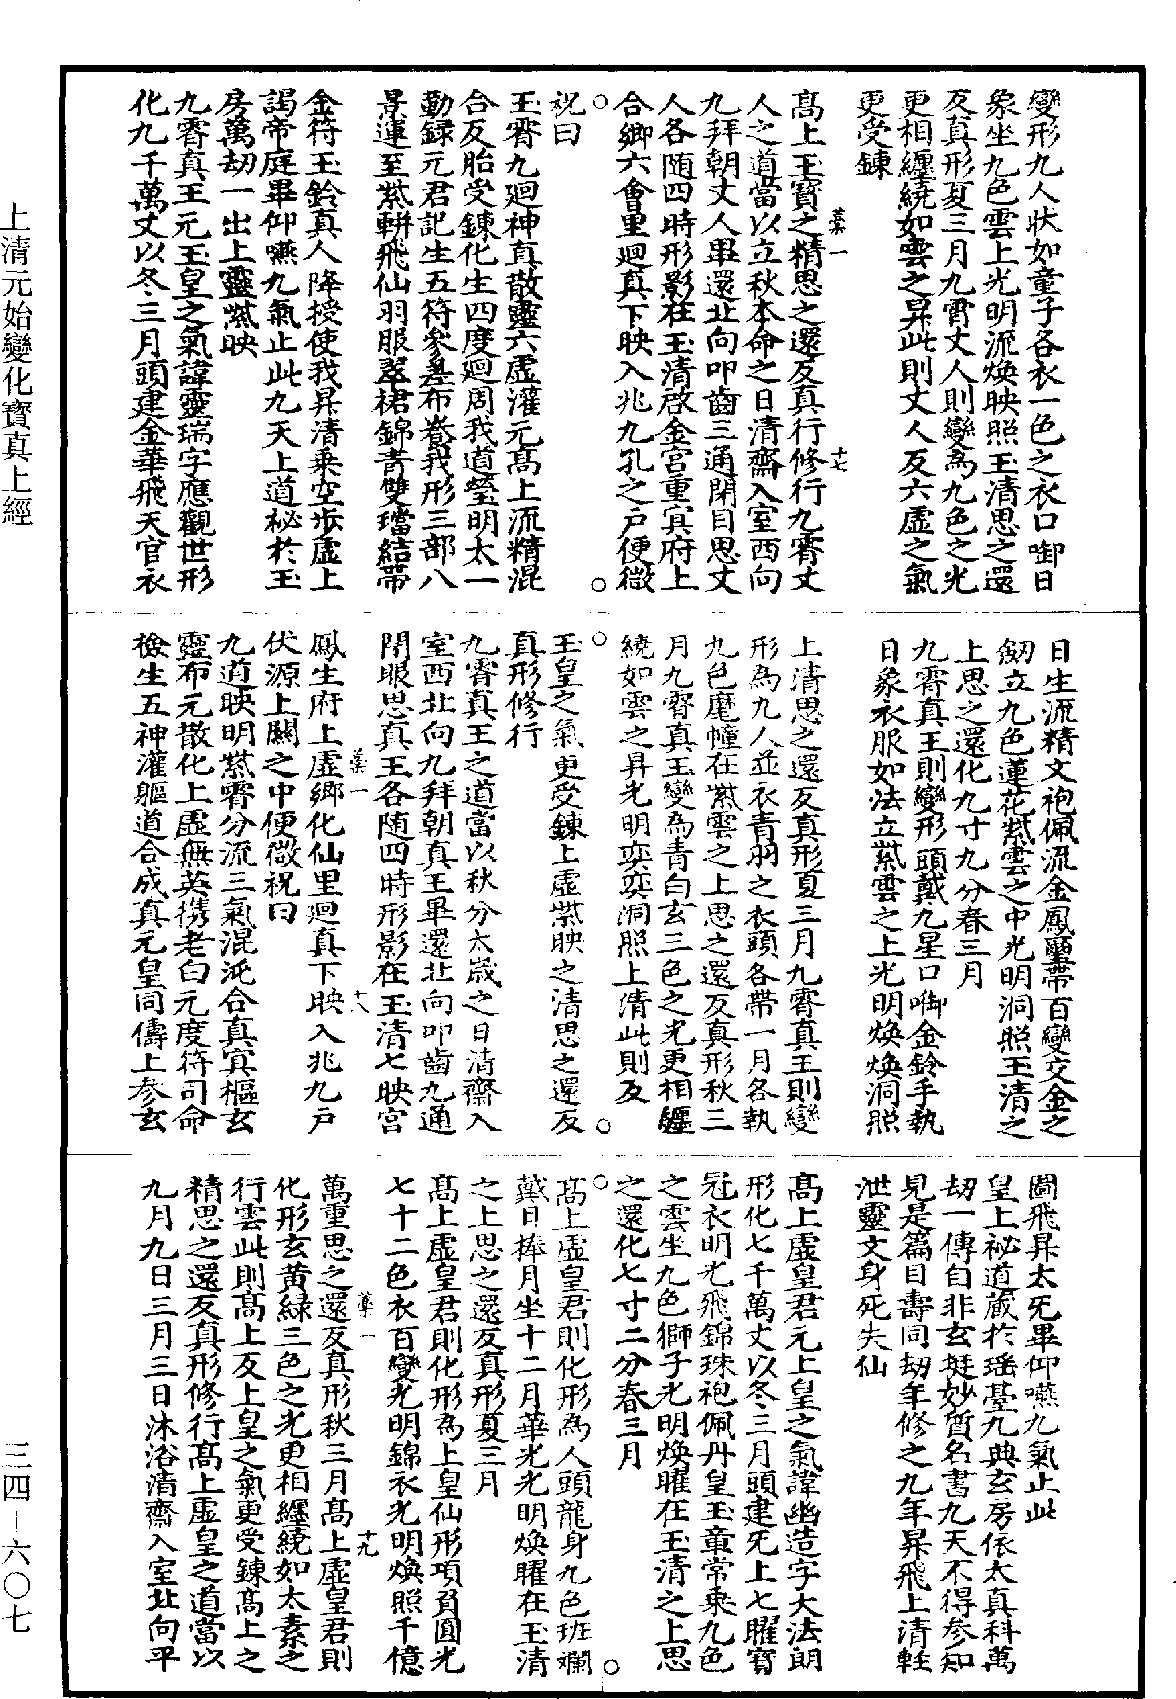 變形九人狀如童子各衣一色之衣口啣日
象坐九色雲上光明流煥映照玉清思之還
反真形夏三月九霄丈人則變為九色之光
更相纏繞如雲之昇此則丈人反六虛之氣
更受鍊
高上玉寶之精思之還反真行修行九霄丈
人之道當以立秋本命之日清齋入室西向
九拜朝丈人畢還北向叩齒三通閉目思丈
人各随四時形影在玉清啓金宮重㝠府上
合鄉六會里迴真下映入兆九孔之戶便微
祝曰
玉霄九迴神真散靈六虛灌元高上流精混
合反胎受鍊化生四度迴周我道瑩明太一
勳録元君記生五符參差布養我形三部八
景運至紫軿飛仙羽服翠裙錦青雙璫結帶
金符玉鈴真人降授使我昇清乘空步虛上
謁帝庭畢仰嚥九氣止此九天上道祕於玉
房萬劫一出上靈紫映
九霄真王元玉皇之氣諱靈瑞字應觀世形
化九千萬丈以冬三月頭建金華飛天官衣
日生流精文袍佩流金鳳璽帶百變交金之
劒立九色蓮花紫雲之中光明洞照玉清之
上思之還化九寸九分春三月
九霄真王則變形頭戴九星口啣金鈴手執
日象衣服如法立紫雲之上光明煥煥洞照
上清思之還反真形夏三月九霄真王則變
形為九人並衣青羽之衣頭各帶一月各執
九色麾幢在紫雲之上思之還反真形秋三
月九霄真玉變為青白玄三色之光更相纏
繞如雲之昇光明奕奕洞照上清此則反
玉皇之氣更受鍊上虛紫映之清思之還反
真形修行
九霄真王之道當以秋分太歲之日清齋入
室西北向九拜朝真王畢還北向叩齒九通
閉眼思真王各随四時形影在玉清七映宮
鳳生府上虛鄉化仙里迴真下映入兆九戶
伏源上關之中便微祝曰
九道映明紫霄分流三氣混沌合真㝠樞玄
靈布元散化上虛無英携老白元度符司命
檢生五神灌軀道合成真元皇同儔上参玄
圖飛昇太旡畢仰嚥九氣止此
皇上祕道藏於瑤臺九典玄房依太真科萬
劫一傳自非玄挺妙質名書九天不得参知
見是篇目壽同劫年修之九年昇飛上清輕
泄靈文身死失仙
高上虛皇君元上皇之氣諱幽造字大法朗
形化七千萬丈以冬三月頭建旡上七曜寶
冠衣明光飛錦珠袍佩丹皇玉章常乘九色
之雲坐九色獅子光明煥曜在玉清之上思
之還化七寸二分春三月
高上虛皇君則化形為人頭龍身九色班斕
戴日捧月坐十二月華光光明煥曜在玉清
之上思之還反真形夏三月
高上虛皇君則化形為上皇仙形項負圓光
七十二色衣百變光明錦衣光明煥照千億
萬重思之還反真形秋三月高上虛皇君則
化形玄黃緑三色之光更相纏繞如太素之
行雲此則高上反上皇之氣更受鍊高上之
精思之還反真形修行高上虛皇之道當以
九月九日三月三日沐浴清齋入室北向平
上清元始變化寶真上經
三四-六〇七
十七
十八
十九